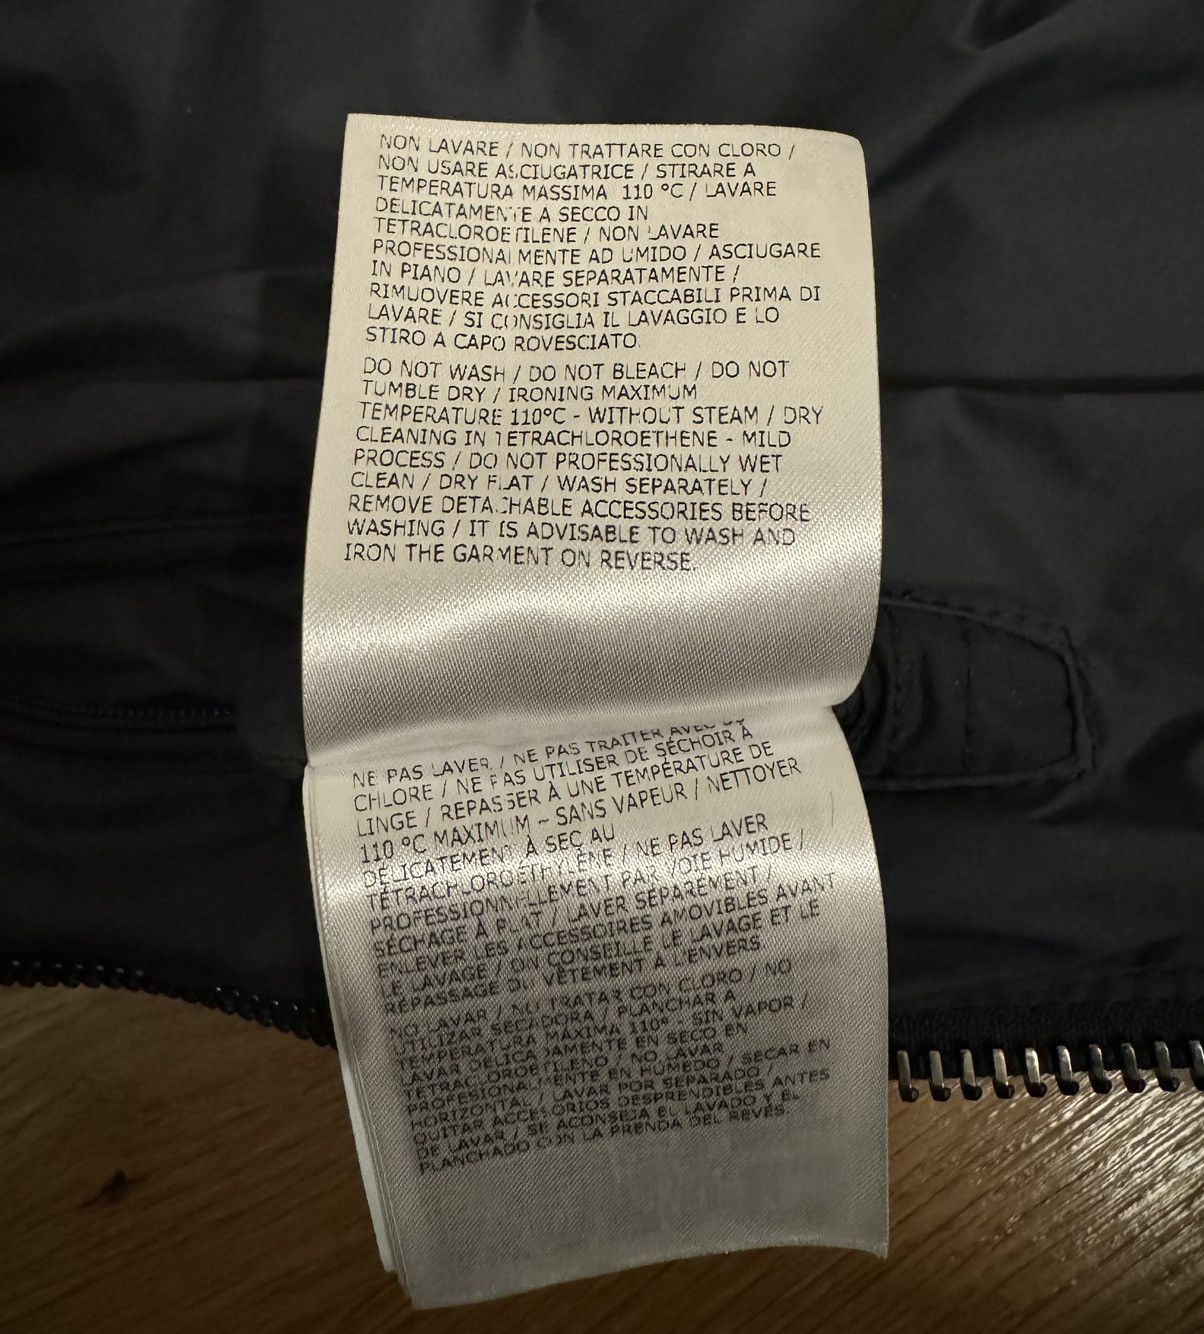 NON LAVARE / NON TRATTARE CON CLORO /
NON USARE ASCIUGATRICE / STIRARE A
TEMPERATURA MASSIMA 110 °C / LAVARE
DELICATAMENTE A SECCO IN
TETRACLOROETILENE / NON LAVARE
PROFESSIONALMENTE AD UMIDO / ASCIUGARE
IN PIANO / LAVARE SEPARATAMENTE /
RIMUOVERE ACCESSORI STACCABILI PRIMA DI
LAVARE / SI CONSIGLIA IL LAVAGGIO E LO
STIRO A CAPO ROVESCIATO.
DO NOT WASH / DO NOT BLEACH / DO NOT
TUMBLE DRY / IRONING MAXIMUM
TEMPERATURE 110°C - WITHOUT STEAM / DRY
CLEANING IN TETRACHLOROETHENE - MILD
PROCESS / DO NOT PROFESSIONALLY WET
CLEAN / DRY FLAT / WASH SEPARATELY /
REMOVE DETACHABLE ACCESSORIES BEFORE
WASHING / IT IS ADVISABLE TO WASH AND
IRON THE GARMENT ON REVERSE.
NE PAS LAVER / NE PAS TRAITER AVEC DU
CHLORE / NE PAS UTILISER DE SÉCHOIR À
LINGE / REPASSER À UNE TEMPÉRATURE DE
110 °C MAXIMUM – SANS VAPEUR / NETTOYER
DÉLICATEMENT À SEC AU
TÉTRACHLOROÉTHYLÈNE / NE PAS LAVER
PROFESSIONNELLEMENT PAR VOIE HUMIDE /
SÉCHAGE À PLAT / LAVER SÉPARÉMENT /
ENLEVER LES ACCESSOIRES AMOVIBLES AVANT
LE LAVAGE / ON CONSEILLE LE LAVAGE ET LE
REPASSAGE DU VÊTEMENT À L'ENVERS.
NO LAVAR / NO TRATAR CON CLORO / NO
UTILIZAR SECADORA / PLANCHAR A
TEMPERATURA MÁXIMA 110° - SIN VAPOR /
LAVAR DELICADAMENTE EN SECO EN
TETRACLOROETILENO / NO LAVAR
PROFESIONALMENTE EN HÚMEDO / SECAR EN
HORIZONTAL / LAVAR POR SEPARADO /
QUITAR ACCESORIOS DESPRENDIBLES ANTES
DE LAVAR / SE ACONSEJA EL LAVADO Y EL
PLANCHADO CON LA PRENDA DEL REVÉS.